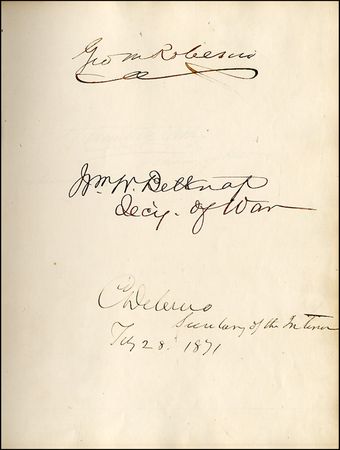 Geo M Robeson
Wm. W. Belknap
Secy. of War
C Delano
Secretary of the Interior
Feby 28. 1871